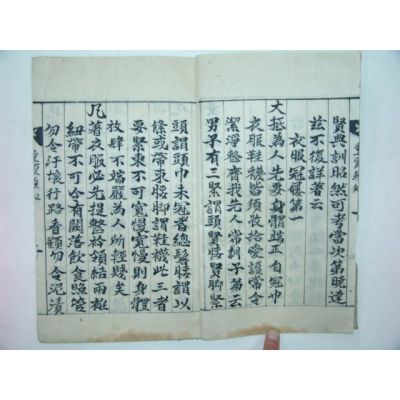 賢典訓昭然可考當次第曉達
茲不復詳著云
衣服冠履第一
大抵為人先要身體端正自冠巾
衣服鞋襪皆須收拾愛護常令
潔淨整齊我先人常訓子弟云
男子有三緊謂頭緊腰緊脚緊
頭謂頭巾未冠者總髻腰謂以
絛或帶束腰脚謂鞋襪此三者
要緊束不可寬慢寬慢則身體
放肆不端嚴為人所輕賤矣
凡著衣服必先提整衿領結兩衽
紐帶不可令有闕落飲食照管
勿令汙壞行路看顧勿令泥漬